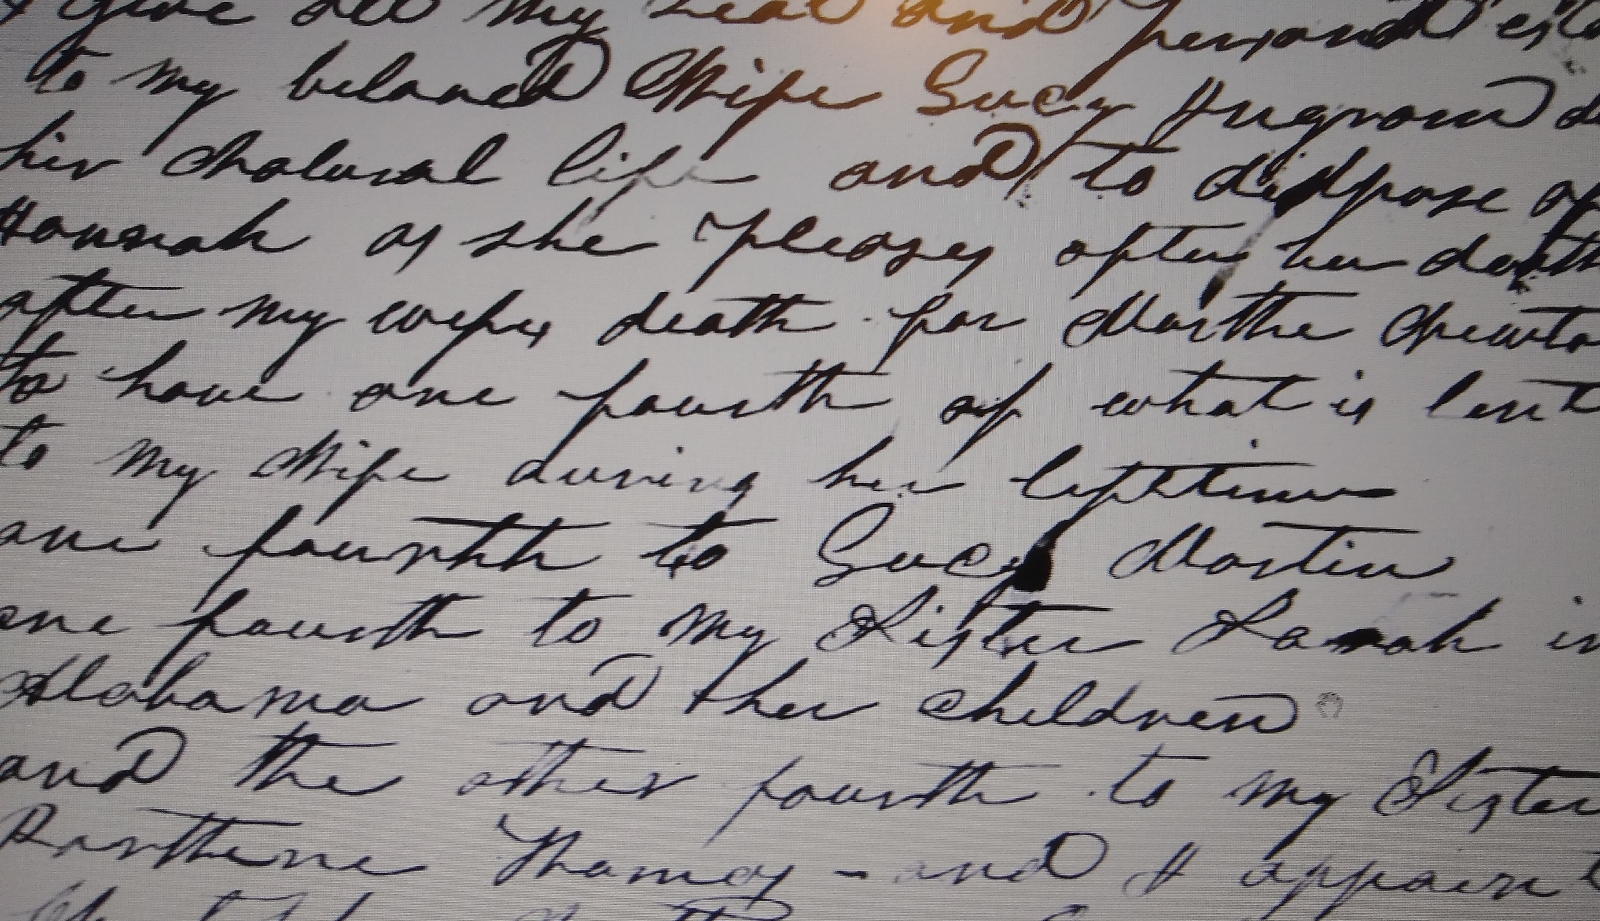 I give all my real and personal esta
to my beloved Wife Lucy Ingrom d
hir Natural life and to dispose of
Hannah as she pleases after her death
after my wifes death for Marthe Newto
to have one fourth of what is lent
to my Wife during her lifetime
one fourth to Lucy Martin
one fourth to my Sister Sarah in
Alabama and ther children
and the other fourth to my Sister
Parthene Thomas - and I appoint